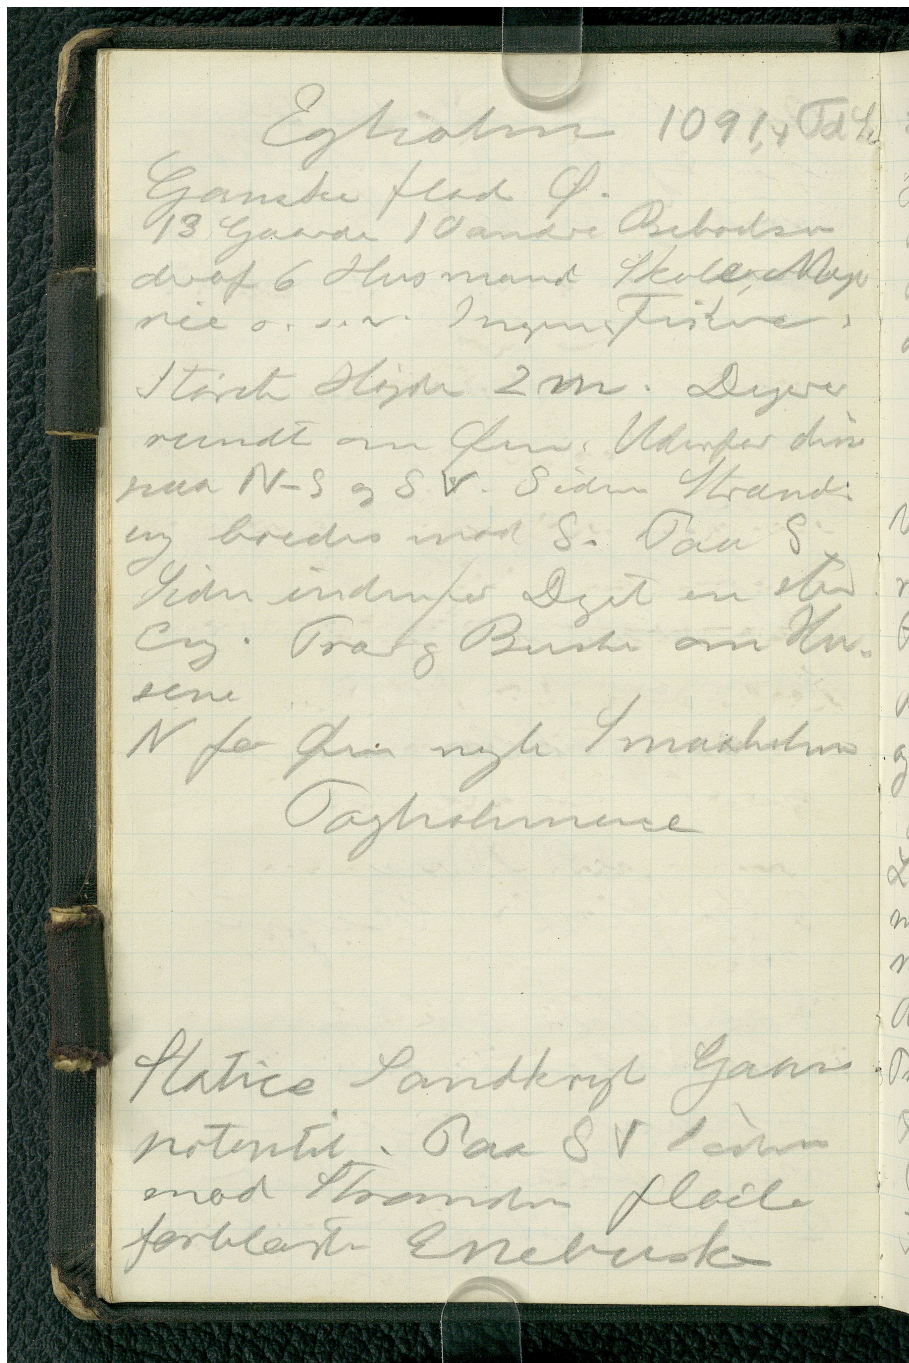 Egholm 1091,4 Td L
Ganske flad Ø.
13 Gaarde 10 andre Beboelser
deraf 6 Husmænd Skole, Meje
rie o. s. v. Ingen Fiskere.
Største Højde 2 m. Diger
rundt om Øen. Udenfor disse
paa N-S og SV. Siden Strand-
eng bredes mod S. Paa S
Siden indenfor Diget en stor
Eng. Træ og Buske om Hu-
sene
N for Øen nogle Smaaholme
Tagholmene
Statice Sandkryb Gaase
potentil. Paa SV Siden
mod Stranden flade
forblæste Enebuske